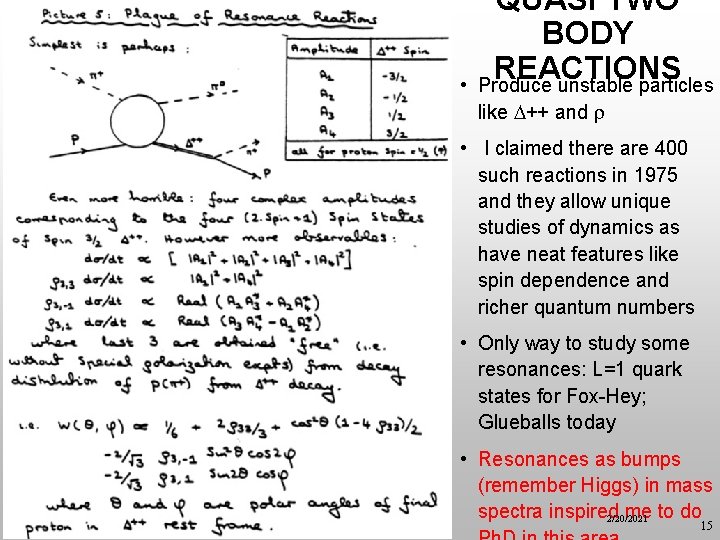 Picture 5: Plague of Resonance Reactions
Simplest is perhaps:
π+
π0
P
Δ++
π+
P
Amplitude Δ++ Spin
A1 -3/2
A2 -1/2
A3 1/2
A4 3/2
all for proton Spin = 1/2 (°)
Even more horrible: four complex amplitudes
corresponding to the four (2.Spin+1) Spin States
of Spin 3/2 Δ++. However more observables:
dσ/dt ∝ [ |A1|² + |A2|² + |A3|² + |A4|² ]
ρ3,3 dσ/dt ∝ |A1|² + |A4|²
ρ3,-1 dσ/dt ∝ Real (A1 A3* + A2 A4*)
ρ3,1 dσ/dt ∝ Real (A3 A4* - A1 A2*)
where last 3 are obtained "free" (i.e.
without special polarization expts) from decay
distribution of P(π+) from Δ++ decay.
i.e. W(θ, φ) ∝ 1/6 + 2ρ33/3 + cos²θ (1-4 ρ33)/2
-2/√3 ρ3,-1 sin²θ cos2φ
-2/√3 ρ3,1 sin2θ cosφ
where θ and φ are polar angles of final
proton in Δ++ rest frame.
QUASI TWO
BODY
REACTIONS
• Produce unstable particles
like Δ++ and ρ
• I claimed there are 400
such reactions in 1975
and they allow unique
studies of dynamics as
have neat features like
spin dependence and
richer quantum numbers
• Only way to study some
resonances: L=1 quark
states for Fox-Hey;
Glueballs today
• Resonances as bumps
(remember Higgs) in mass
spectra inspired me to do
PhD in this area
2/20/2021
15